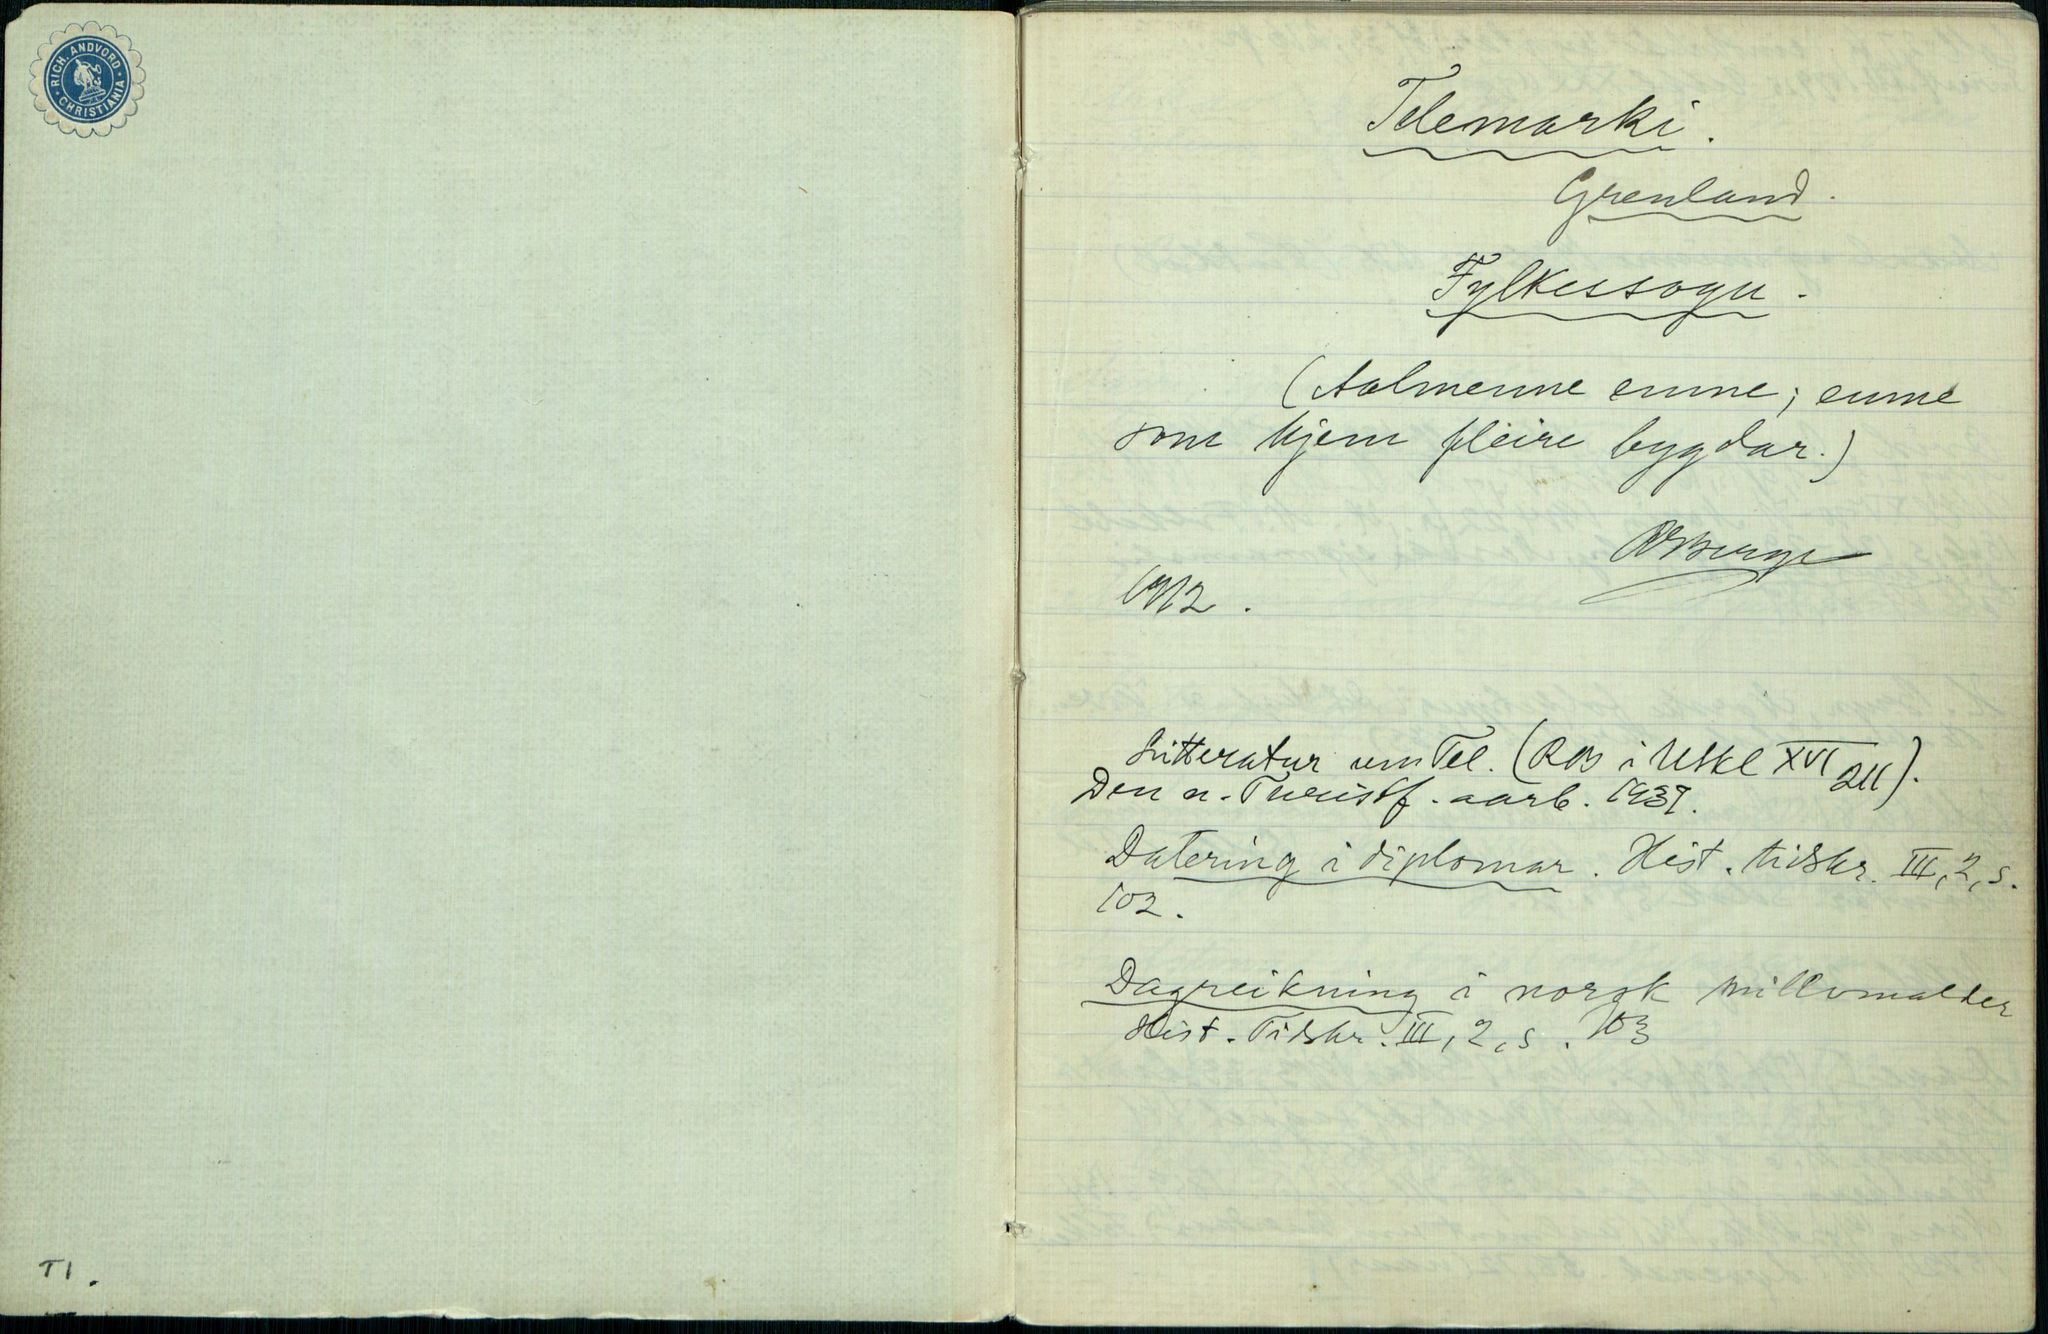 RICH. ANDVORD
CHRISTIANIA
T1.
Telemarki.
Grenland.
Fylkessogu.
(Aalmenne emne; emne
som kjem fleire bygdar.)
RBerge
1912.
Litteratur um Tel. (RB i USkl XVI 211).
Den n. Turistf. aarb. 1939.
Datering i diplomar. Hist. tidskr. III, 2, s.
102.
Dagreikning i norsk millomalder
Hist. Tidskr. III, 2, s. 103